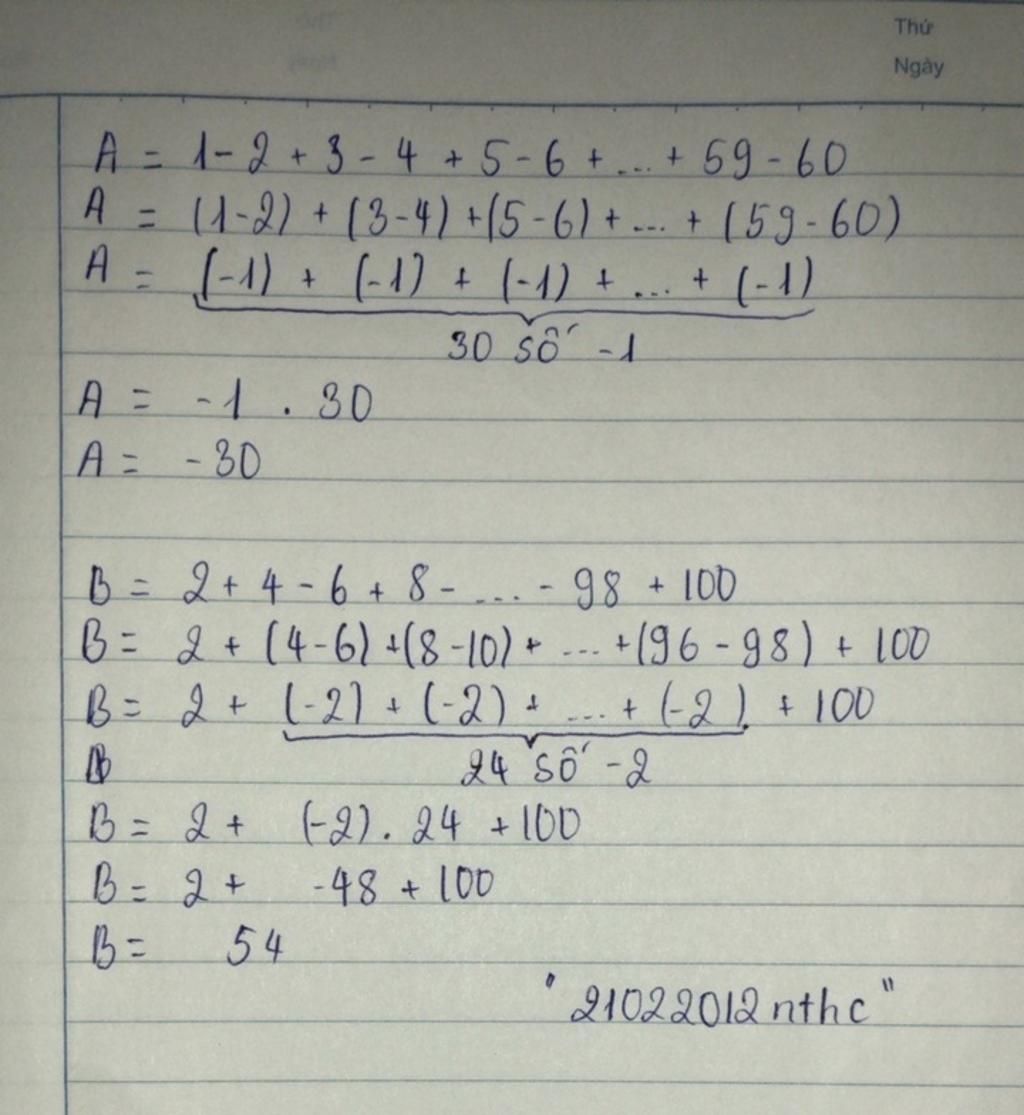 Thứ
Ngày
A = 1 - 2 + 3 - 4 + 5 - 6 + ... + 59 - 60
A = (1-2) + (3-4) + (5-6) + ... + (59-60)
A = (-1) + (-1) + (-1) + ... + (-1)
30 số -1
A = -1 . 30
A = -30
B = 2 + 4 - 6 + 8 - ... - 98 + 100
B = 2 + (4-6) + (8-10) + ... + (96-98) + 100
B = 2 + (-2) + (-2) + ... + (-2) + 100
24 số -2
B = 2 + (-2) . 24 + 100
B = 2 + -48 + 100
B = 54
" 21022012nthc "